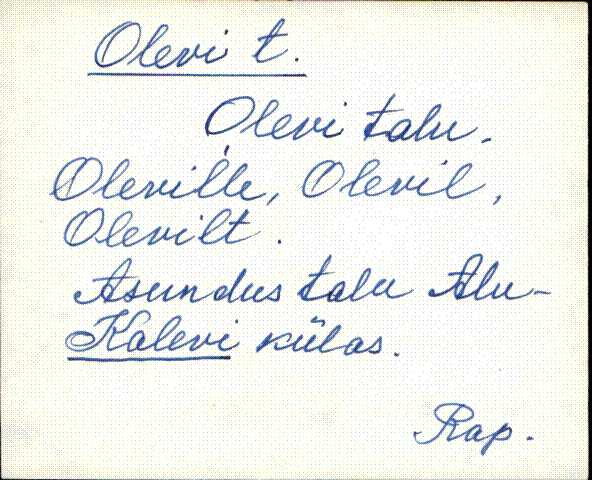 Olevi t.
Olevi talu.
Oleville, Olevil,
Olevilt.
Asundus talu Alu-
Kalevi külas.
Rap.